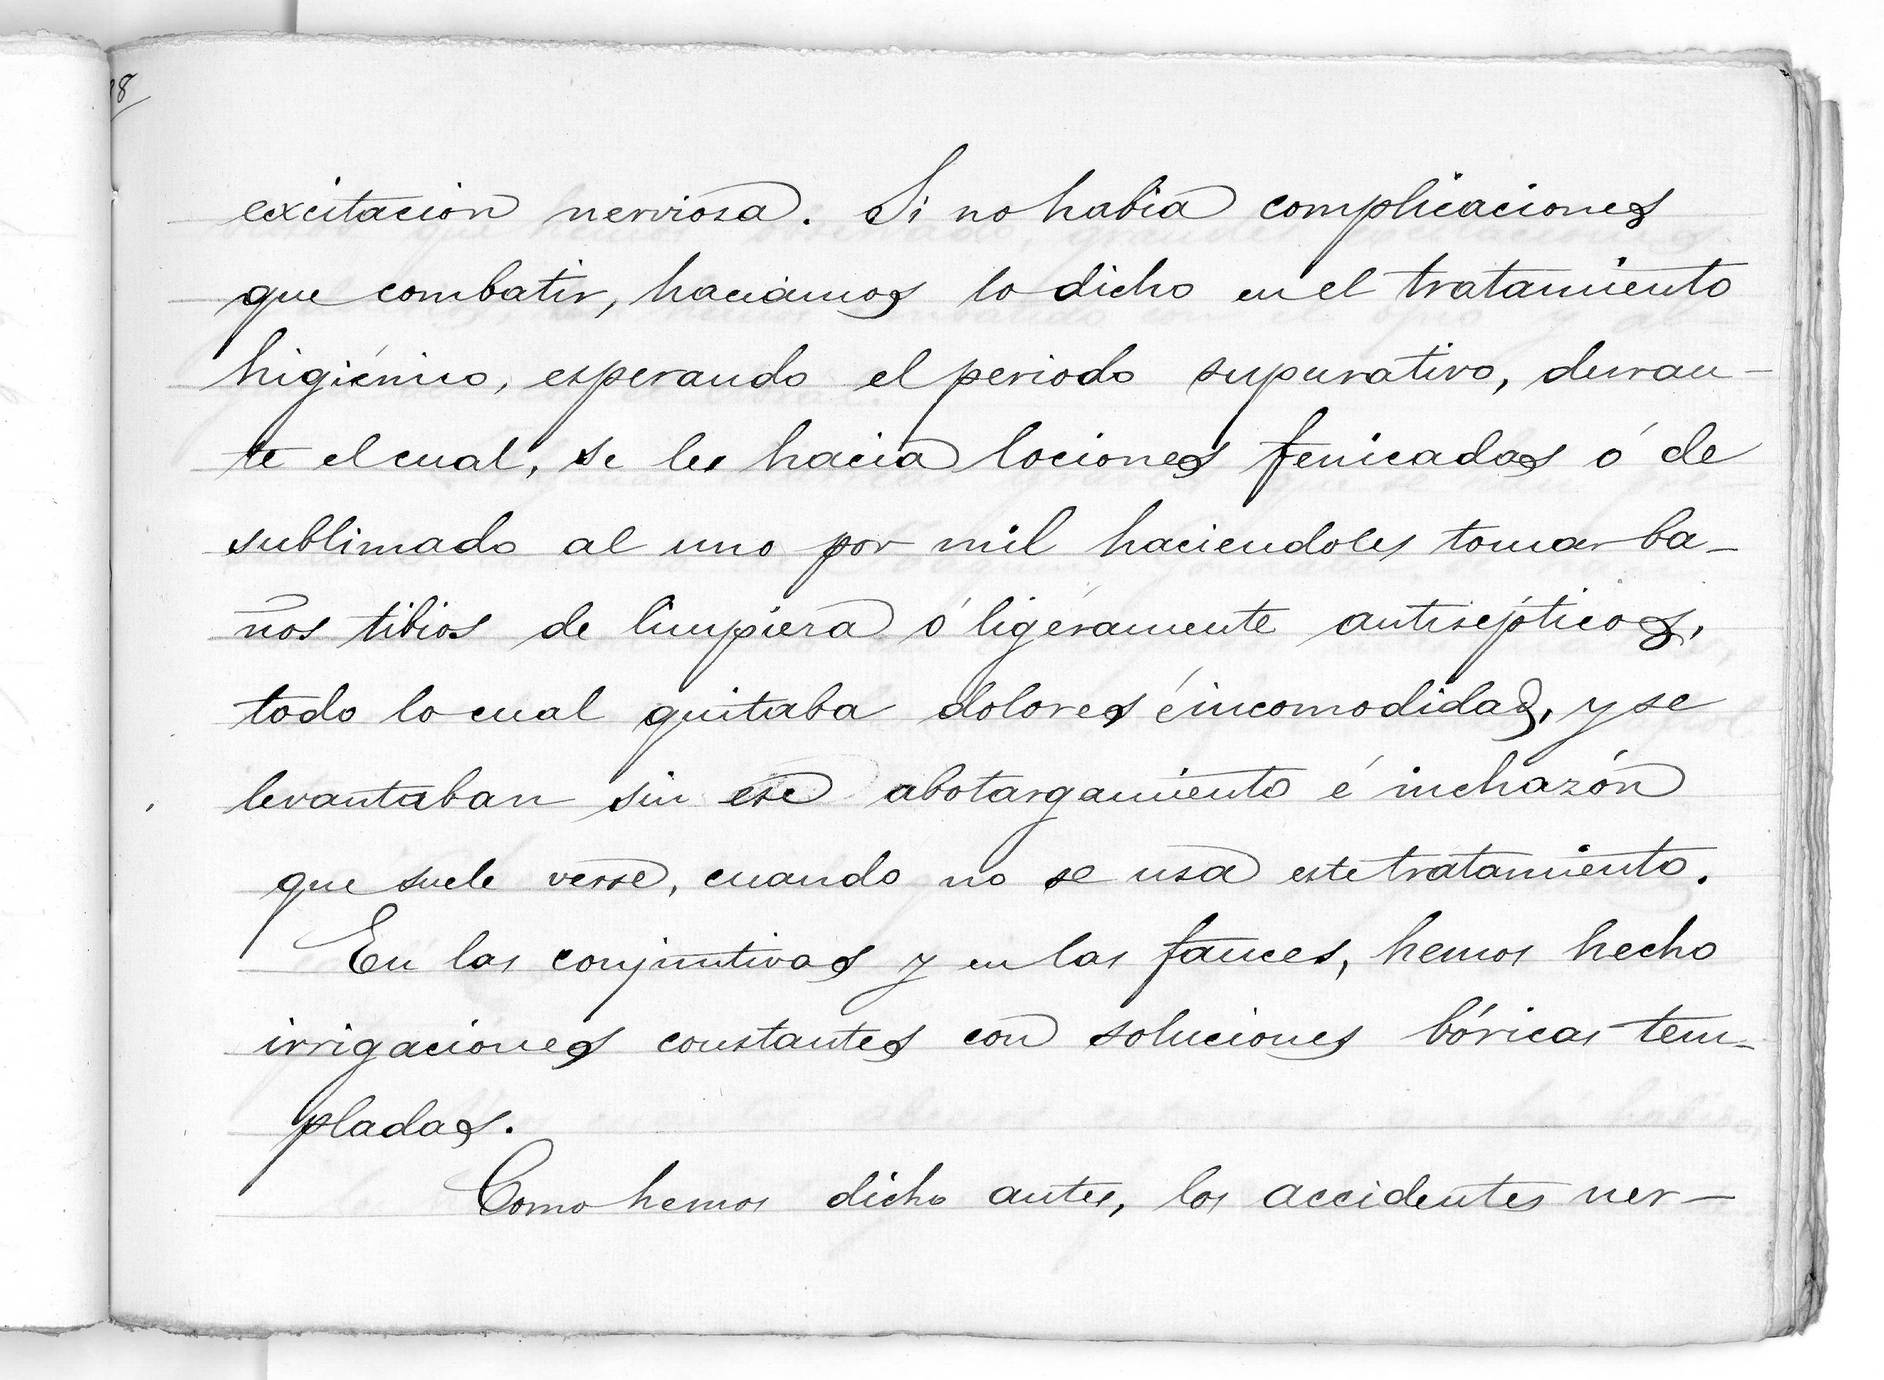 excitacion nerviosa. Si no habia complicaciones
que combatir, haciamos lo dicho en el tratamiento
higiénico, esperando el periodo supurativo, duran-
te el cual, se les hacia lociones fenicadas ó de
sublimado al uno por mil haciendoles tomar ba-
ños tibios de limpieza ó ligeramente antisépticos,
todo lo cual quitaba dolores é incomodidad, y se
levantaban sin ese abotargamiento é inchazón
que suele verse, cuando no se usa este tratamiento.
En las conjuntivas y en las fauces, hemos hecho
irrigaciones constantes con soluciones bóricas tem-
pladas.
Como hemos dicho antes, los accidentes ner-